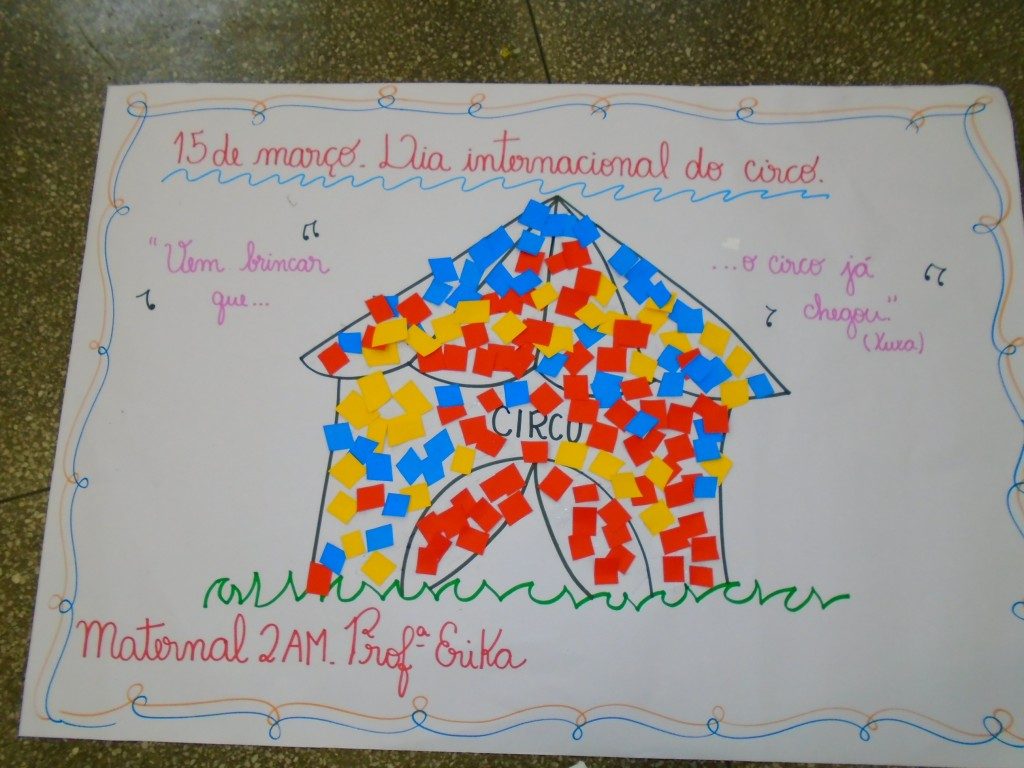 15 de março. Dia internacional do circo.
"Vem brincar
que...
...o circo já
chegou."
(Xuxa)
CIRCO
Maternal 2AM. Profª Erika